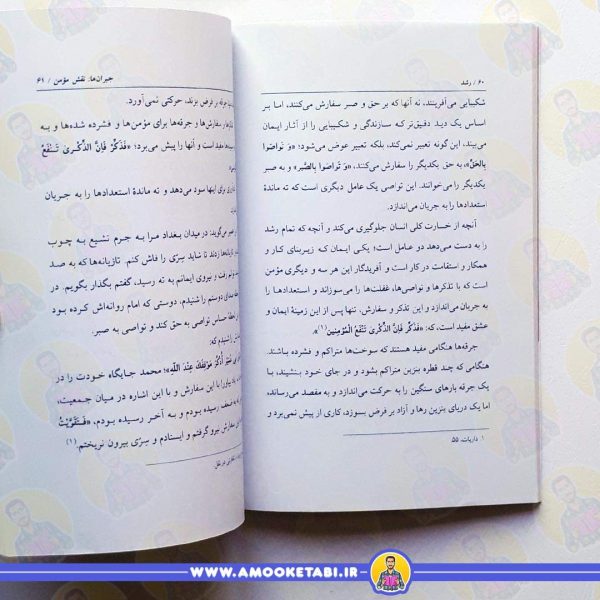 ۶۰ / رشد
شکیبایی می‌آفرینند، نه آنها که بر حق و صبر سفارش می‌کنند، اما بر
اساس یک دید دقیق‌تر که سازندگی و شکیبایی را از آثار ایمان
می‌بیند، این گونه تعبیر نمی‌کند، بلکه تعبیر عوض می‌شود؛ «وَ تَواصَوا
بِالحَقِّ»، به حق یکدیگر را سفارش می‌کنند، «وَ تَواصَوا بِالصَّبرِ» و به صبر
یکدیگر را می‌خوانند. این تواصی یک عامل دیگری است که ته ماندهٔ
استعدادها را به جریان می‌اندازد.
آنچه از خسارت کلی انسان جلوگیری می‌کند و آنچه که تمام رشد
را به دست می‌دهد دو عامل است؛ یکی ایمان که زیربنای کار و
همکار و استقامت در کار است و آفریدگار این هر سه و دیگری مؤمن
است که با تذکرها و تواصی‌ها، غفلت‌ها را می‌سوزاند و استعدادها را
به جریان می‌اندازد و این تذکر و سفارش، تنها پس از این زمینهٔ ایمان و
عشق مفید است، که: «فَذَکِّر فَإِنَّ الذِّکریٰ تَنفَعُ المُؤمِنین»(۱).
جرقه‌ها هنگامی مفید هستند که سوخت‌ها متراکم و فشرده باشند.
هنگامی که چند قطره بنزین متراکم بشود و در جای خود بنشیند، با
یک جرقه بارهای سنگین را به حرکت می‌اندازد و به مقصد می‌رساند،
اما یک دریای بنزین رها و آزاد بر فرض بسوزد، کاری از پیش نمی‌برد و
۱. ذاریات، ۵۵.
جبران‌ها: نقش مؤمن / ۶۱
جرقه بر فرض بزند، حرکتی نمی‌آورد.
سفارش‌ها و جرقه‌ها برای مؤمن‌ها و فشرده شده‌ها و به
مفید است و آنها را پیش می‌برد؛ «فَذَکِّر فَإِنَّ الذِّکریٰ تَنفَعُ
برای اینها سود می‌دهد و ته ماندهٔ استعدادها را به جریان
می‌گوید: در میدان بغداد مرا به جرم تشیع به چوب
تازیانه‌ها زدند تا شاید سِرّی را فاش کنم. تازیانه‌ها که به صد
رفت و نیروی ایمانم به ته رسید، گفتم بگذار بگویم. در
صدای دوستم را شنیدم، دوستی که امام روانه‌اش کرده بود
حساس تواصی به حق کند و تواصی به صبر.
شنیدم که:
اُذکُر مَوقِفَکَ عِندَ اللّٰهِ»؛ محمد جایگاه خودت را در
بیاور! با این سفارش و با این اشاره در میان جمعیت،
ضعف رسیده بودم و به آخر رسیده بودم، «فَتَقَوَّیتُ
سفارش نیرو گرفتم و ایستادم و سِرّی بیرون نریختم.(۱)
WWW.AMOOKETABI.IR